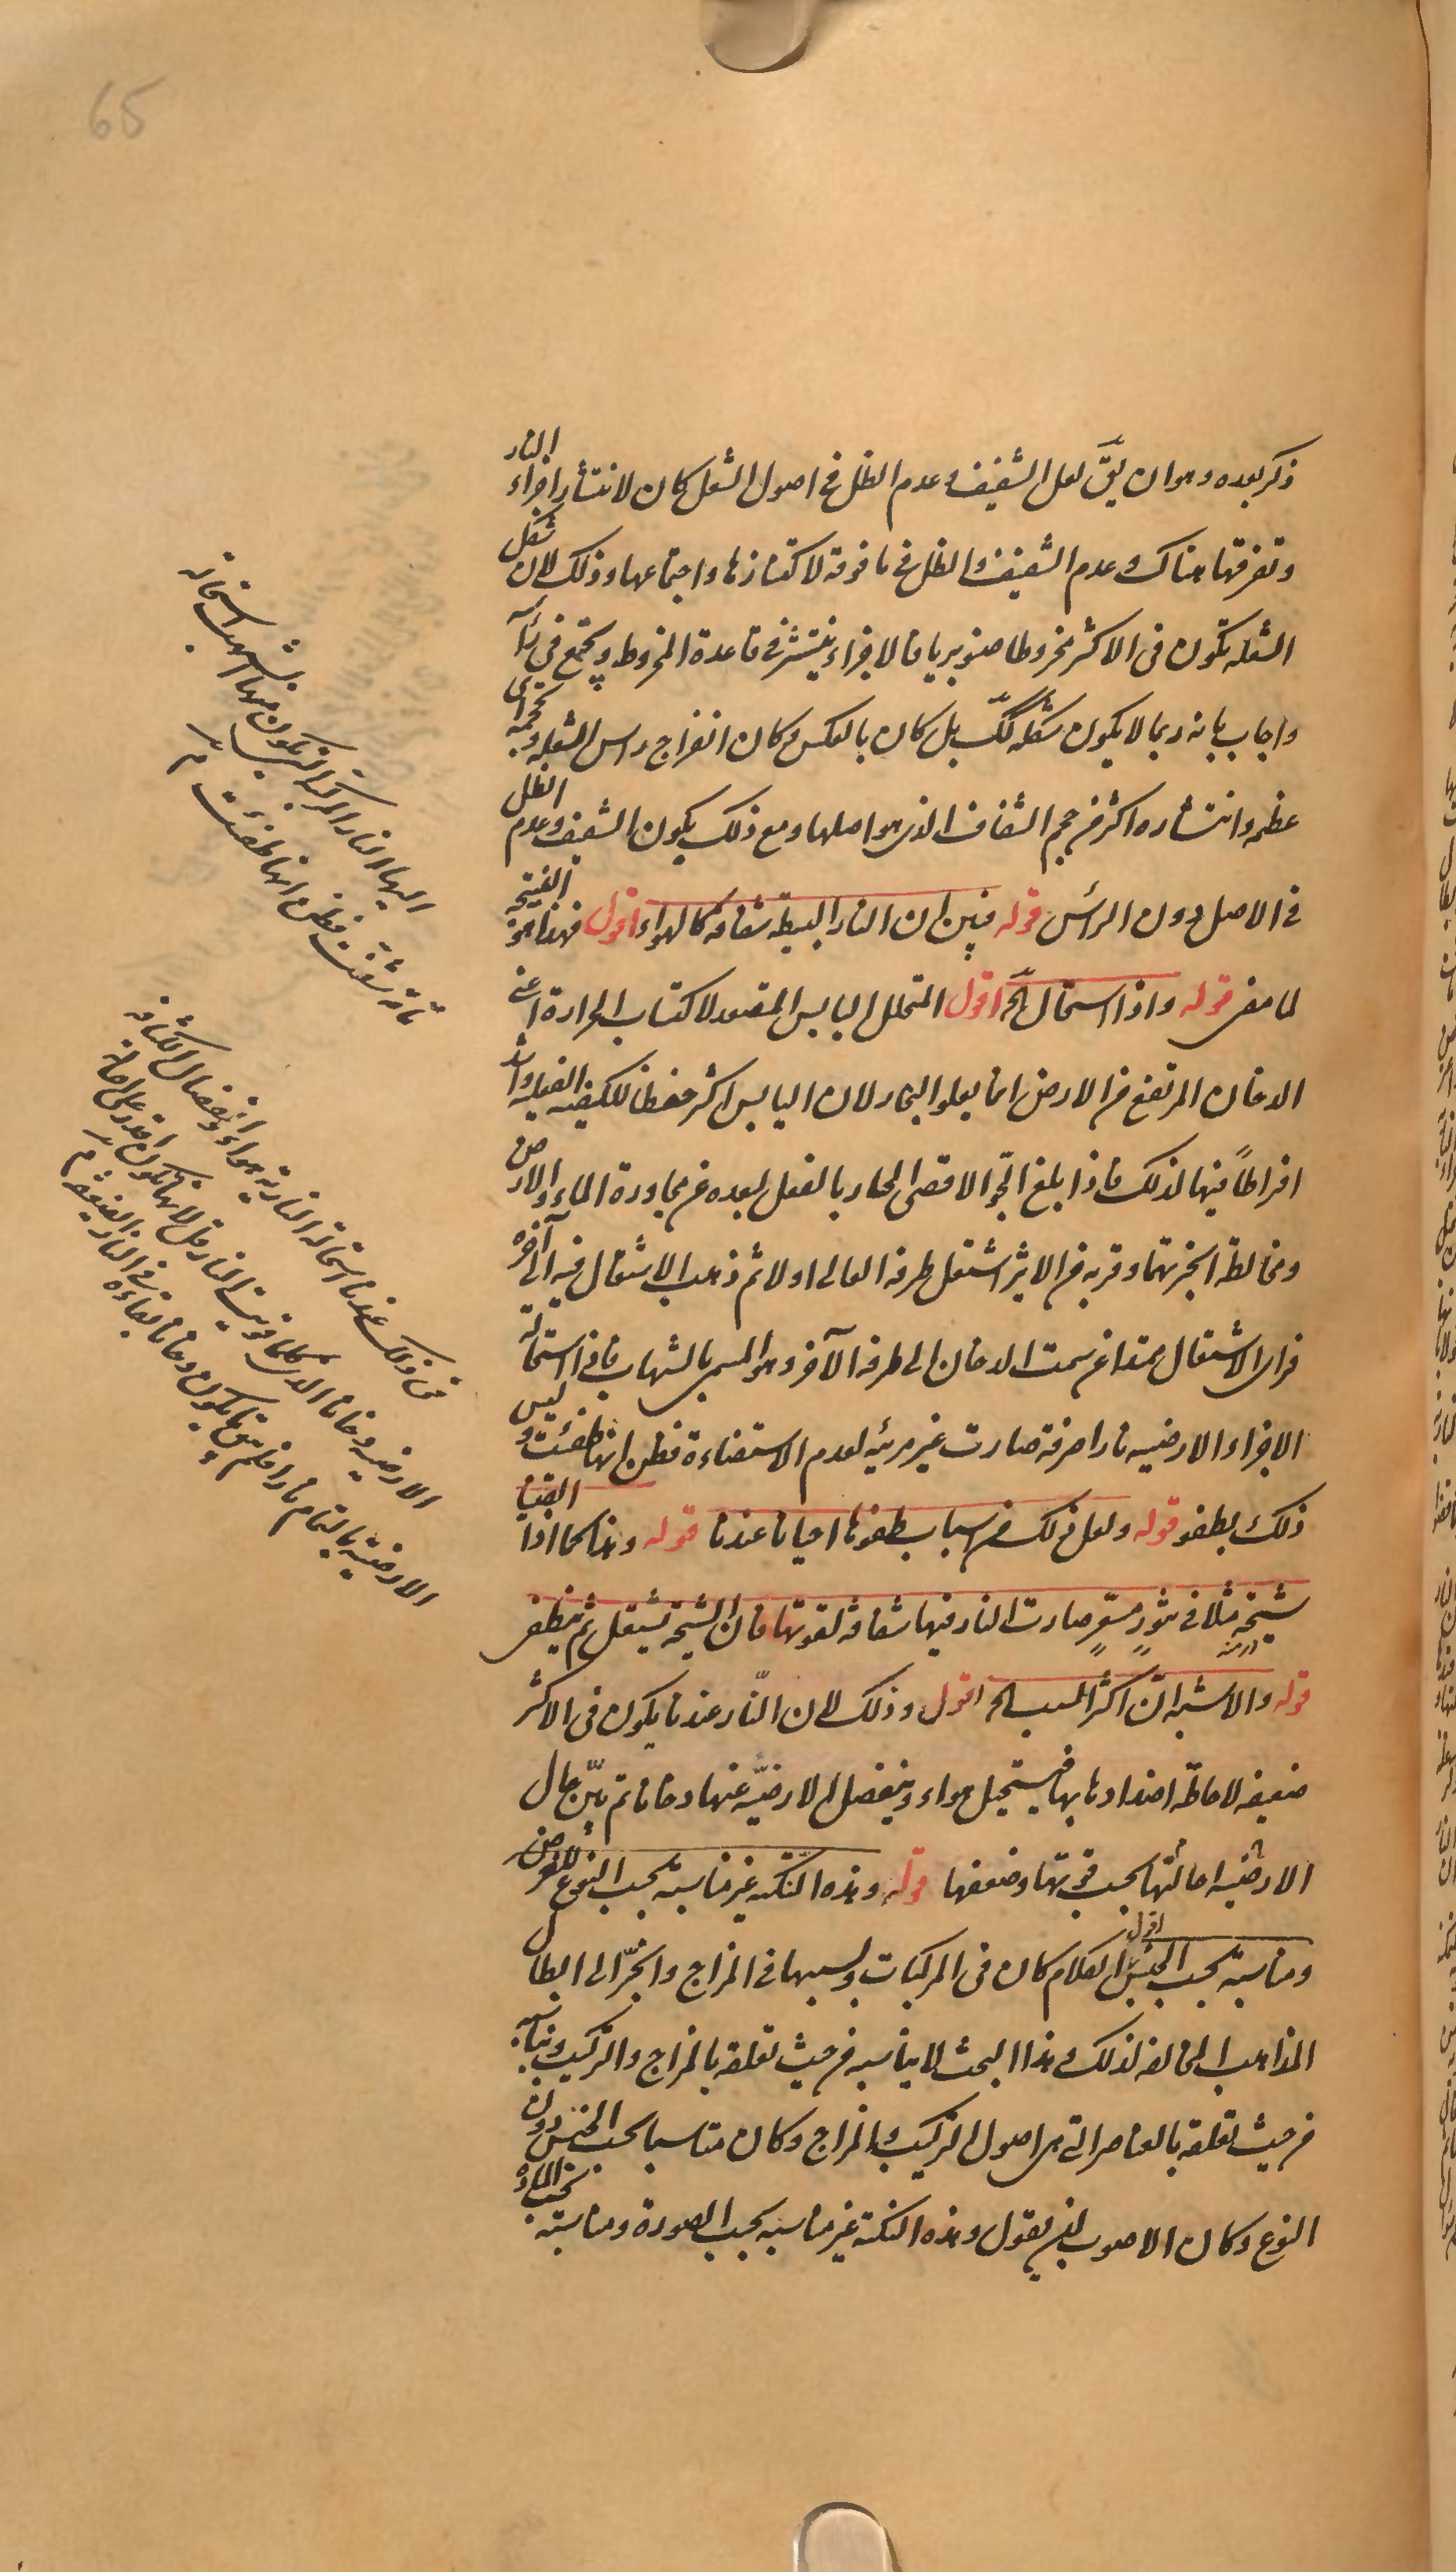 65
ذكر بعده وهو ان يقّ لعل الشفيف وعدم الظل فى اصول الشعل كان لانتشار اجزاء النار
وتفرقها هناك وعدم الشفيف والظل فى ما فوقه لاكتنازها واجتماعها وذلك لان شكل
الشعله تكون فى الاكثر مخروطا صنوبريا فالاجزاء ينتشر فى قاعدة المخروط ويجتمع فى
واجاب بانه ربما لا يكون شكله كك بل كان بالعكس وكان انفراج راس الشعله و
عظمه وانتشاره اكثر من حجم الشفاف الذى هو اصلها ومع ذلك يكون الشفيف وعدم الظل
فى الاصل دون الرأس قوله فبين ان النار البسيطة شفافه كالهواء اقول فهذا هو النتيجه
لما مضى قوله واذا استحال الخ اقول المتحلل اليابس المتصعد لاكتساب الحرارة اعنى
الدخان المرتفع من الارض انما يعلو البخار لان اليابس اكثر حفظا للكيفيه الفعليه واشد
افراطاً فيها لذلك فاذا بلغ الجّو الاقصى الحار بالفعل لبعده عن مجاورة الماء والارض
ومخالطة ابخرتهما وقربه من الاثير اشتعل طرفه العالى اولا ثم ذهب الاشتعال فيه الى آخره
فراى الاشتعال ممتدا عن سمت الدخان الى طرفه الآخر وهو المسمى بالشهاب فاذا استحالة
الاجزاء الارضيه نارا صرفة صارت غير مرئيه لعدم الاستضاءة فظن انها طفئت و ليس
ذلك بطفو قوله ولعل ذلك من اسباب طفوئها احيانا عندنا قوله وهذا كما اذا القينا
شيخة مثلا فى تنّور مسعّر صارت النار فيها شفافه لقوتها فان الشيخة تشتعل ثم ينطفى
قوله والاشبه انّ اكثر السبب الخ اقول وذلك لان النّار عندنا يكون فى الاكثر
ضعيفه لاحاطة اضدادها بها فيستحيل هواء وينفصل الارضيّه عنها دخانا ثم بيّن حال
الارضيه احالتها بحسب قوتها وضعفها قوله وهذه النكته غير مناسبة بحسب النوع للغرض
ومناسبة بحسب الجنس اقول الكلام كان فى المركبات ونسبها فى المزاج وانجرّ الى ابطال
المذاهب المخالفه لذلك وهذا البحث لا يناسبه من حيث تعلقه بالمزاج والتركيب ويناسبه
من حيث تعلقه بالعناصر التى هى اصول التركيب والمزاج وكان مناسبا بحسب الجنس دون
النوع وكان الاصوب ان يقول وهذه النكتة غير مناسبه بحسب الصورة ومناسبته بحسب المادة
اليها النار المركبة التى يكون منها الشهب استحالة
تامّة شفت فظن انها طفئت
فى ذلك عندنا استحالة الناريّة هواء وانفصال الكثافة
الارضيه دخانا الذى كلما قويت النار قل لانها تكون اقدر على احالة
الارضيه بالتمام نارا فلم يبق ما يكون دخانا بقاءه فى النار الضعيفه